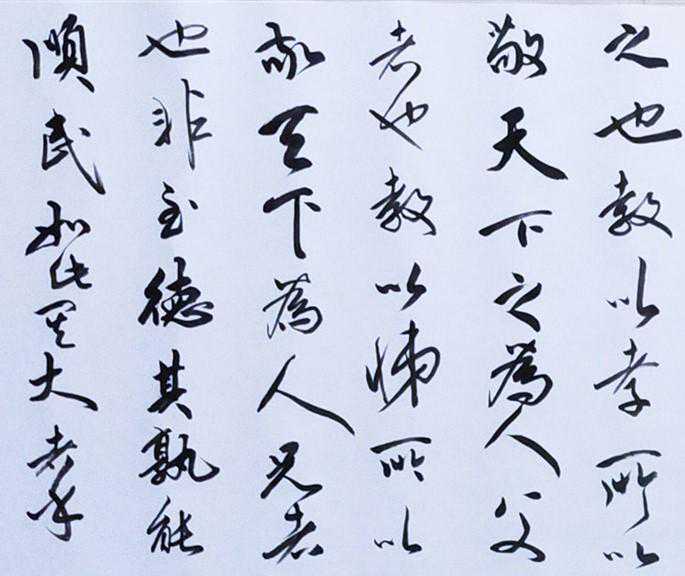 之也教以孝所以
敬天下之為人父
者也教以悌所以
敬天下為人兄者
也非至德其孰能
順民如此其大者乎